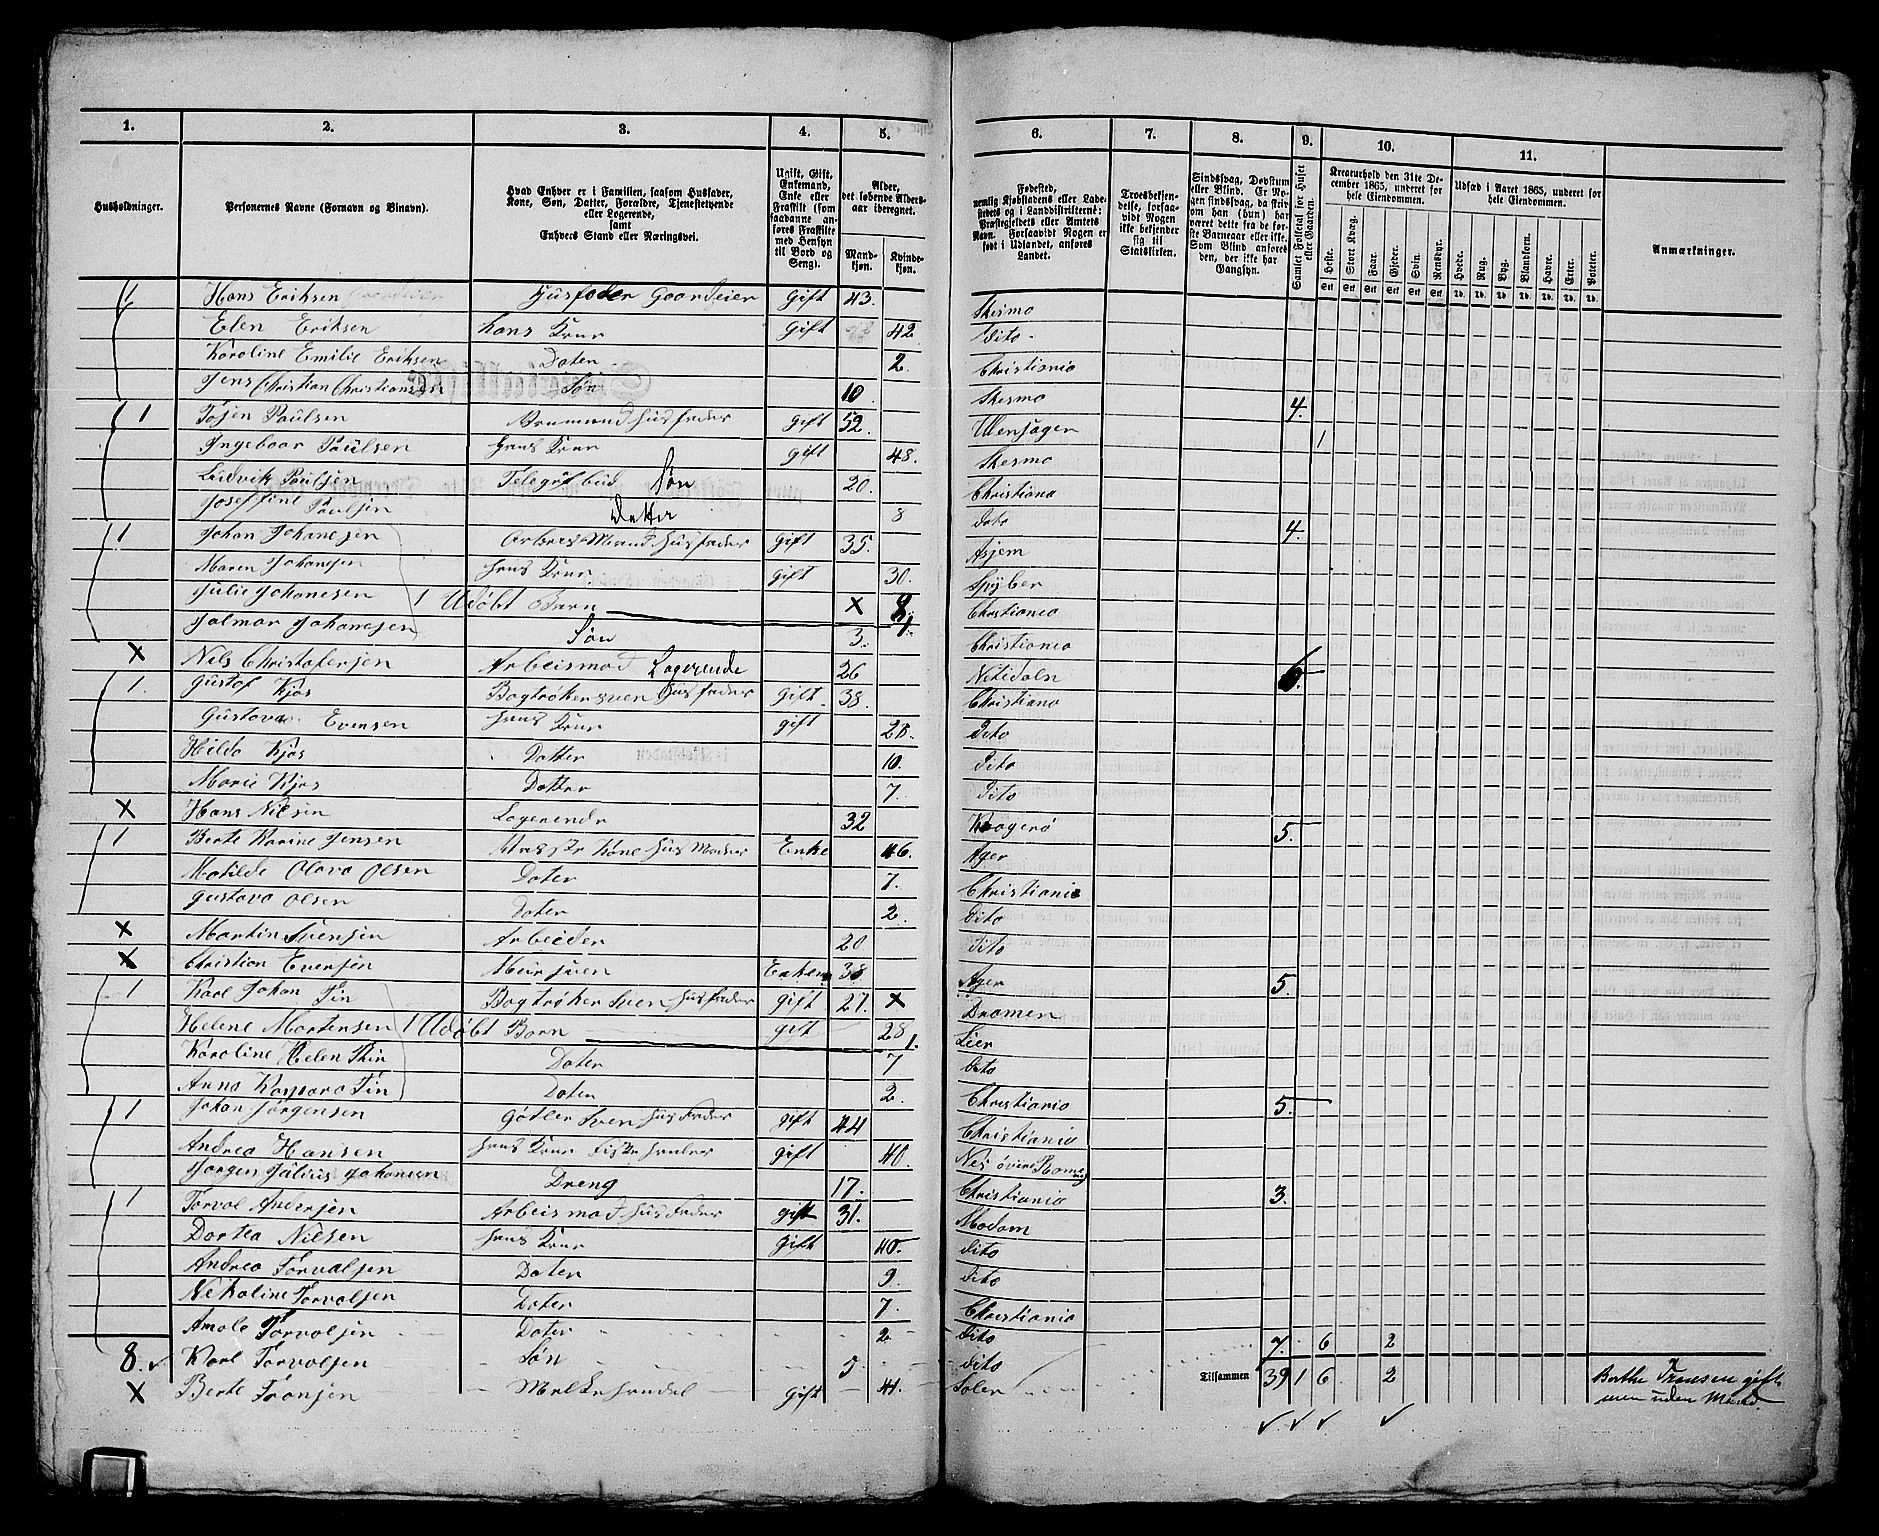 1. 2. 3. 4. 5. 6. 7. 8. 9. 10. 11.
Husholdninger.
Personernes Navne (Fornavn og Binavn).
Hvad Enhver er i Familien, saasom Husfader, Kone, Søn, Datter, Forældre, Tjenestetyende eller Logerende, samt Enhvers Stand eller Næringsvei.
Ugift, Gift, Enkemand, Enke eller Fraskilt (som saadanne anføres Fraskilte med Hensyn til Bord og Seng).
Alder, det løbende Aldersaar iberegnet.
Mandkjøn. Kvindekjøn.
Fødested, nemlig Kjøbstadens eller Ladestedets og i Landdistrikterne: Præstegjeldets eller Amtets Navn. Forsaavidt Nogen er født i Udlandet, anføres Landet.
Troesbekjendelse, forsaavidt Nogen ikke bekjender sig til Statskirken.
Sindssvag, Døvstum eller Blind. Er Nogen sindssvag, da skrives om han (hun) har været dette fra de første Barneaar eller ikke. Som Blind anføres den, der ikke har Gangsyn.
Samlet Folketal for Huset eller Gaarden.
Kreaturhold den 31te December 1865, underet for hele Eiendommen.
Heste. Stort Kvæg. Faar. Gjeder. Svin. Rensdyr.
Udsæd i Aaret 1865, underet for hele Eiendommen.
Hvede. Rug. Byg. Blandkorn. Havre. Erter. Poteter.
Anmærkninger.
Hans Eriksen Husfader Gaardeier gift 43. Skesmo
Elen Eriksen hans Kone gift 42 Dito
Karoline Emilie Eriksen Dater 2. Christiania
Jens Christian Christiansen Søn 10 Skesmo 4.
1 Tojen Paulsen Husfader gift 52. Ulensager 1
Ingeboar Paulsen Hans Kone gift 48. Skesmo
Ludvik Paulsen Telegrafbud Søn 20. Christiana
Joseffine Paulsen Datter 8 Dato 4.
1 Johan Johanesen Arbeis Mand Husfader gift 35. Asjem
Maren Johanesen Hans Kone gift 30. Spyber
Julie Johanesen 1 Udøbt Barn X 8 1. Christiania
Jalmar Johanesen Søn 3. Christiania
X Nils Christofersen Arbeismad Logerende 26 Nitedaln 6.
1. Gustaf Kjos Bogtrøkersven Husfader gift 38. Christiana
Gustava Evensen Hans Kone gift 28. Dito
Hilda Kjos Datter 10. Dito
Marie Kjos Datter 7. Dito
X Hans Nilsen Logerende 32 Kragerø 5.
1 Berte Karine Jensen Kone Hus Moder Enke 46. Ager
Matilde Olava Olsen Dater 7. Christiania
Gustava Olsen Dater 2. Dito
X Martin Svensen Arbeider 20 Dito
X Christian Eversen Mursven Enkem 38 Ager 5.
1 Karl Johan Tin Bogtrøker Sven Husfader gift 27. X Dramen
Helene Martensen 1 Udøbt Barn gift 28 1. Lier
Karoline Helen Thin Dater 7 Dito
Anna Kaspara Tin Dater 2. Christiania 5.
1 Johan Jørgensen Gøtler Sven Husfader gift 44 Christiania
Andrea Hansen Hans Kone Fiskehandler gift 40. Nes øvre Rome
Jørgens Julius Johansen Dreng 17. Christiania 3.
1 Torval Andersen Arbeismad Husfader gift 31. Modum
Dortea Nilsen Hans Kone gift 40. Dito
Andrea Torvalsen Dater 9. Dito
Nikoline Torvalsen Dater 7. Christiania
Amola Torvolsen Dater 2 Dito 7. 6 2
8. Karl Torvolsen Søn 5 Dito Tilsammen 39 1 6 2
X Berte Fronsen Melkehandel gift 41. Soler
Berthe Fransen gift men uden Mand.